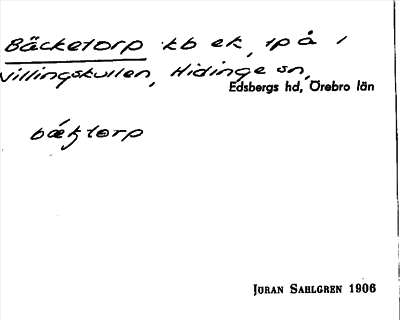 Bäcketorp tb ek, tp å 1
Villingskullen, Hidinge sn,
Edsbergs hd, Örebro län
bǽktorp
Jöran Sahlgren 1906